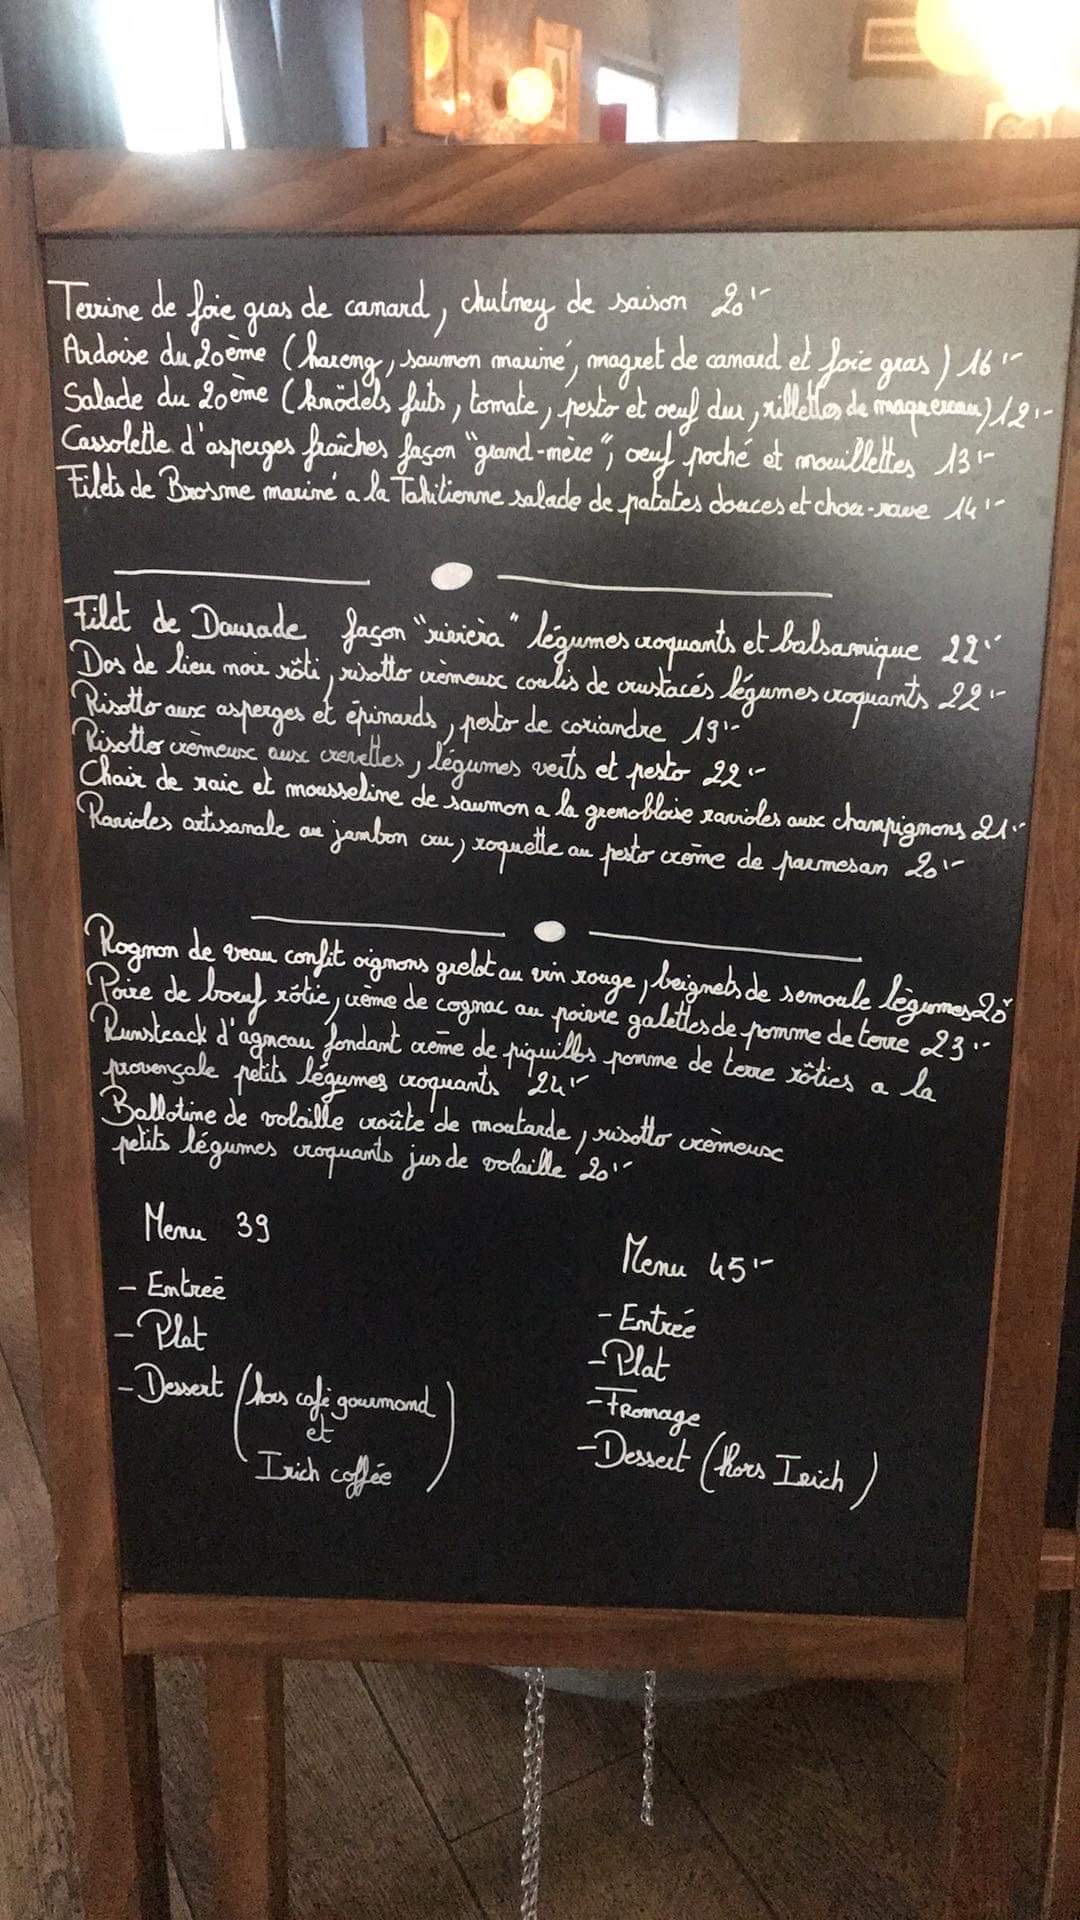 Terrine de foie gras de canard, chutney de saison 20.-
Ardoise du 20ème (hareng, saumon mariné, magret de canard et foie gras) 16.-
Salade du 20ème (knödels frits, tomate, pesto et oeuf dur, rillettes de maquereau) 12.-
Cassolette d'asperges fraîches façon "grand-mère", oeuf poché et mouillettes 13.-
Filets de Brosme mariné a la Tahitienne salade de patates douces et chou-rave 14.-
Filet de Daurade façon "rivièra" légumes croquants et balsamique 22.-
Dos de lieu noir rôti, risotto crèmeux coulis de crustacés légumes croquants 22.-
Risotto aux asperges et épinards, pesto de coriandre 19.-
Risotto crèmeux aux crevettes, légumes verts et pesto 22.-
Chair de raie et mousseline de saumon a la grenobloise ravioles aux champignons 21.-
Ravioles artisanale au jambon cru, roquette au pesto crème de parmesan 20.-
Rognon de veau confit oignons grelot au vin rouge, beignets de semoule lègumes 20.-
Poire de boeuf rôtie, crème de cognac au poivre galettes de pomme de terre 23.-
Rumsteack d'agneau fondant crème de piquillos pomme de terre rôties a la
provençale petits légumes croquants 24.-
Ballotine de volaille croûte de moutarde, risotto crèmeux
petits légumes croquants jus de volaille 20.-
Menu 39
- Entreé
- Plat
- Dessert (hors café gourmand
et
Irich coffée)
Menu 45.-
- Entreé
- Plat
- Fromage
- Dessert (hors Irich)